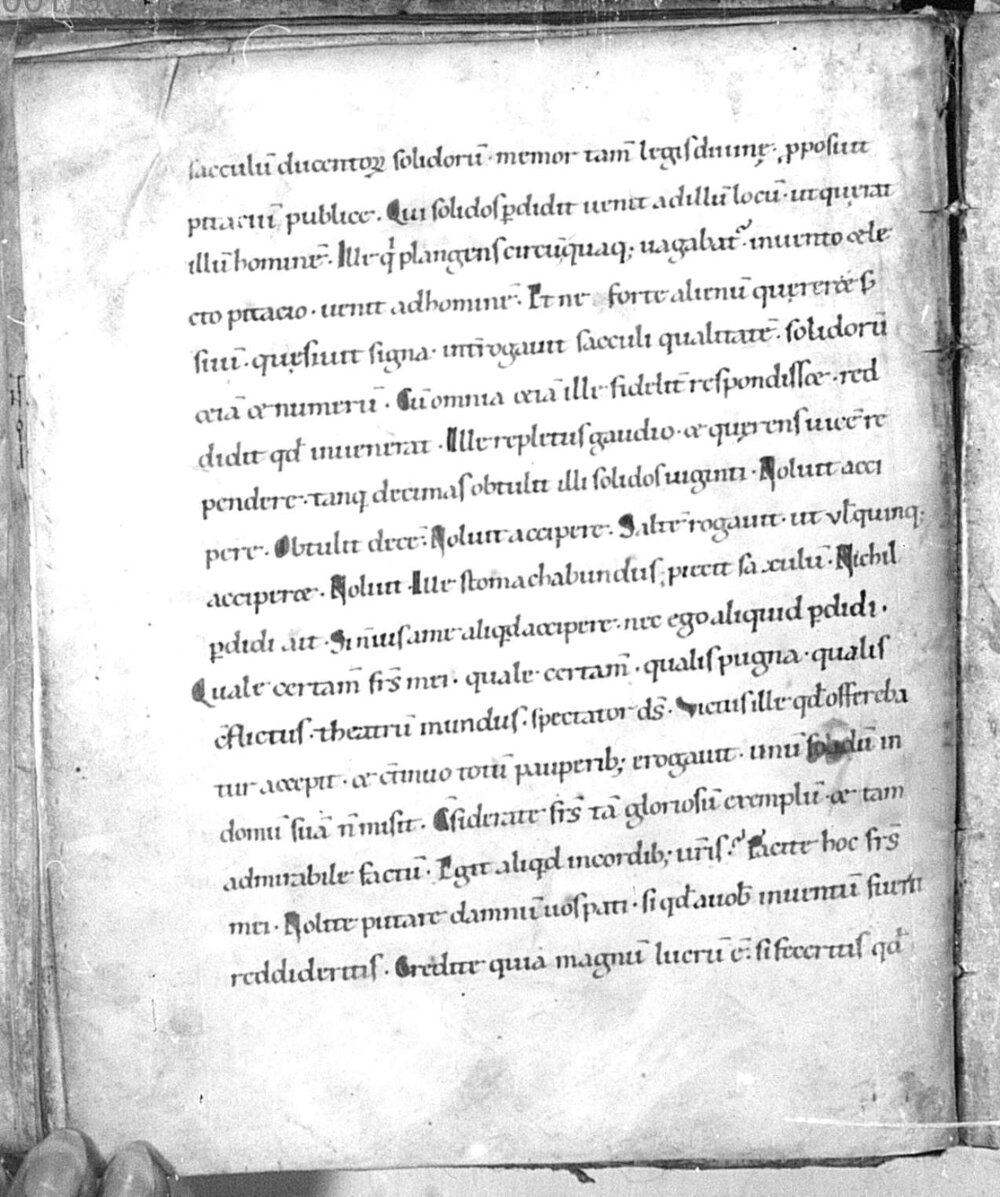 sacculū ducentoꝝ solidorū· memor tam̄ legis diuinę· ꝓposuit
pitaciū publice. Qui solidos ꝑdidit uenit ad illū locū· ut quęrat
illū hominē. Ille qͥ plangens circūquaq; uagabat᷑· inuento & le
cto pitacio· uenit ad hominē. Et ne forte alienū quęrer& ł
suū· quęsiuit signa· int̄rogauit sacculi qualitatē· solidorū
&iā & numerū. Cū omnia &iā ille fidelit̄ respondiss&· red
didit qđ inuenerat. Ille repletus gaudio· & quęrens uicē re
pendere· tanq̄ decimas obtulit illi solidos uiginti. Noluit acci
pere. Obtulit decē. Noluit accipere. Saltē rogauit· ut vł quinq;
acciper&. Noluit. Ille stomachabundus; piecit sacculū. Nichil
ꝑdidi ait. Si n̄ uis a me aliqđ accipere· nec ego aliquid ꝑdidi.
Quale certam̄ frs̄ mei· quale certam̄· qualis pugna· qualis
c̄flictus· theatrū mundus· spectator ds̄. Victus ille qđ offereba
tur accepit· & c̄tinuo totū pauperib; erogauit· unū solidū in
domū suā n̄ misit. C̄siderate frs̄ tā gloriosū exemplū· & tam
admirabile factū. Egit aliqđ in cordib; ur̄is? Facite hoc frs̄
mei. Nolite putare damnū uos pati· si qđ a uob̄ inuentū fuerit
reddideritis. Credite quia magnū lucrū ē· si feceritis qđ